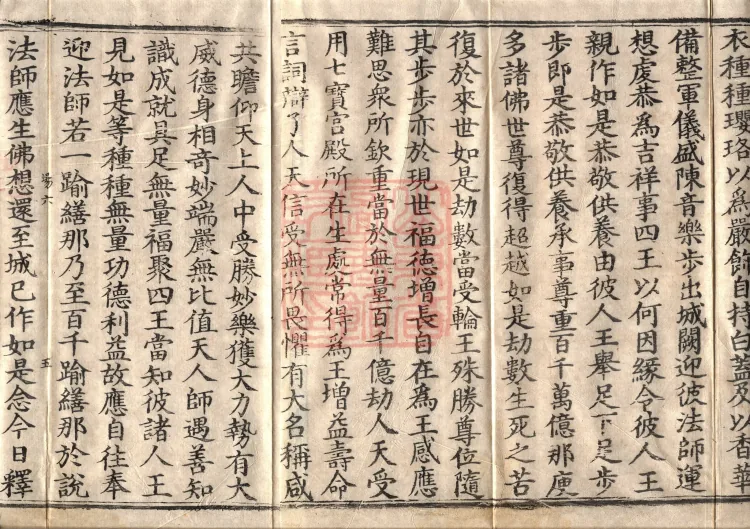 衣種種瓔珞以為嚴飾自持白蓋及以香華
備整軍儀盛陳音樂步出城闕迎彼法師運
想虔恭為吉祥事四王以何因緣令彼人王
親作如是恭敬供養由彼人王舉足下足步
步即是恭敬供養承事尊重百千萬億那庾
多諸佛世尊復得超越如是劫數生死之苦
復於來世如是劫數當受輪王殊勝尊位隨
其步步亦於現世福德增長自在為王感應
難思眾所欽重當於無量百千億劫人天受
用七寶宮殿所在生處常得為王增益壽命
言詞辯了人天信受無所畏懼有大名稱咸
共瞻仰天上人中受勝妙樂獲大力勢有大
威德身相奇妙端嚴無比值天人師遇善知
識成就具足無量福聚四王當知彼諸人王
見如是等種種無量功德利益故應自往奉
迎法師若一踰繕那乃至百千踰繕那於說
五
法師應生佛想還至城已作如是念今日釋